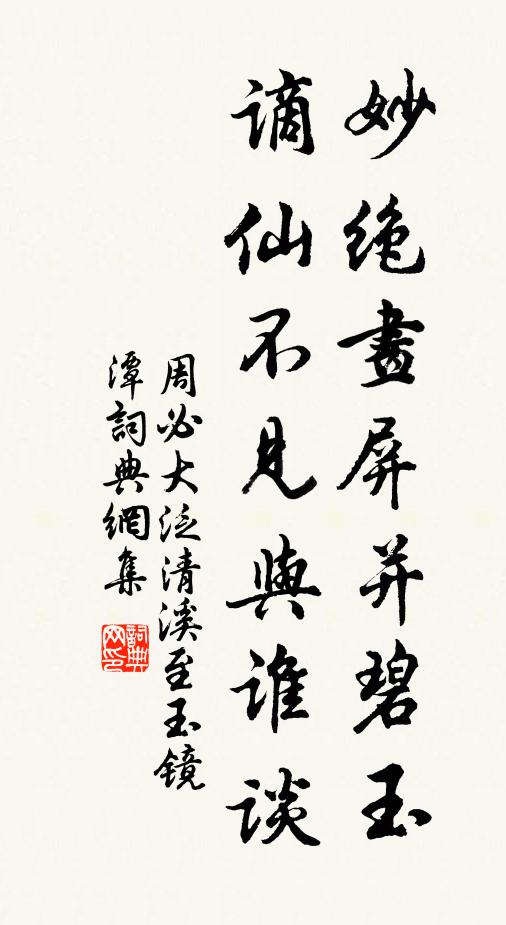 妙绝畫屏并碧玉
谪仙不見與谁谈
周必大泛清溪至玉镜
潭詞典網集
詞典网印